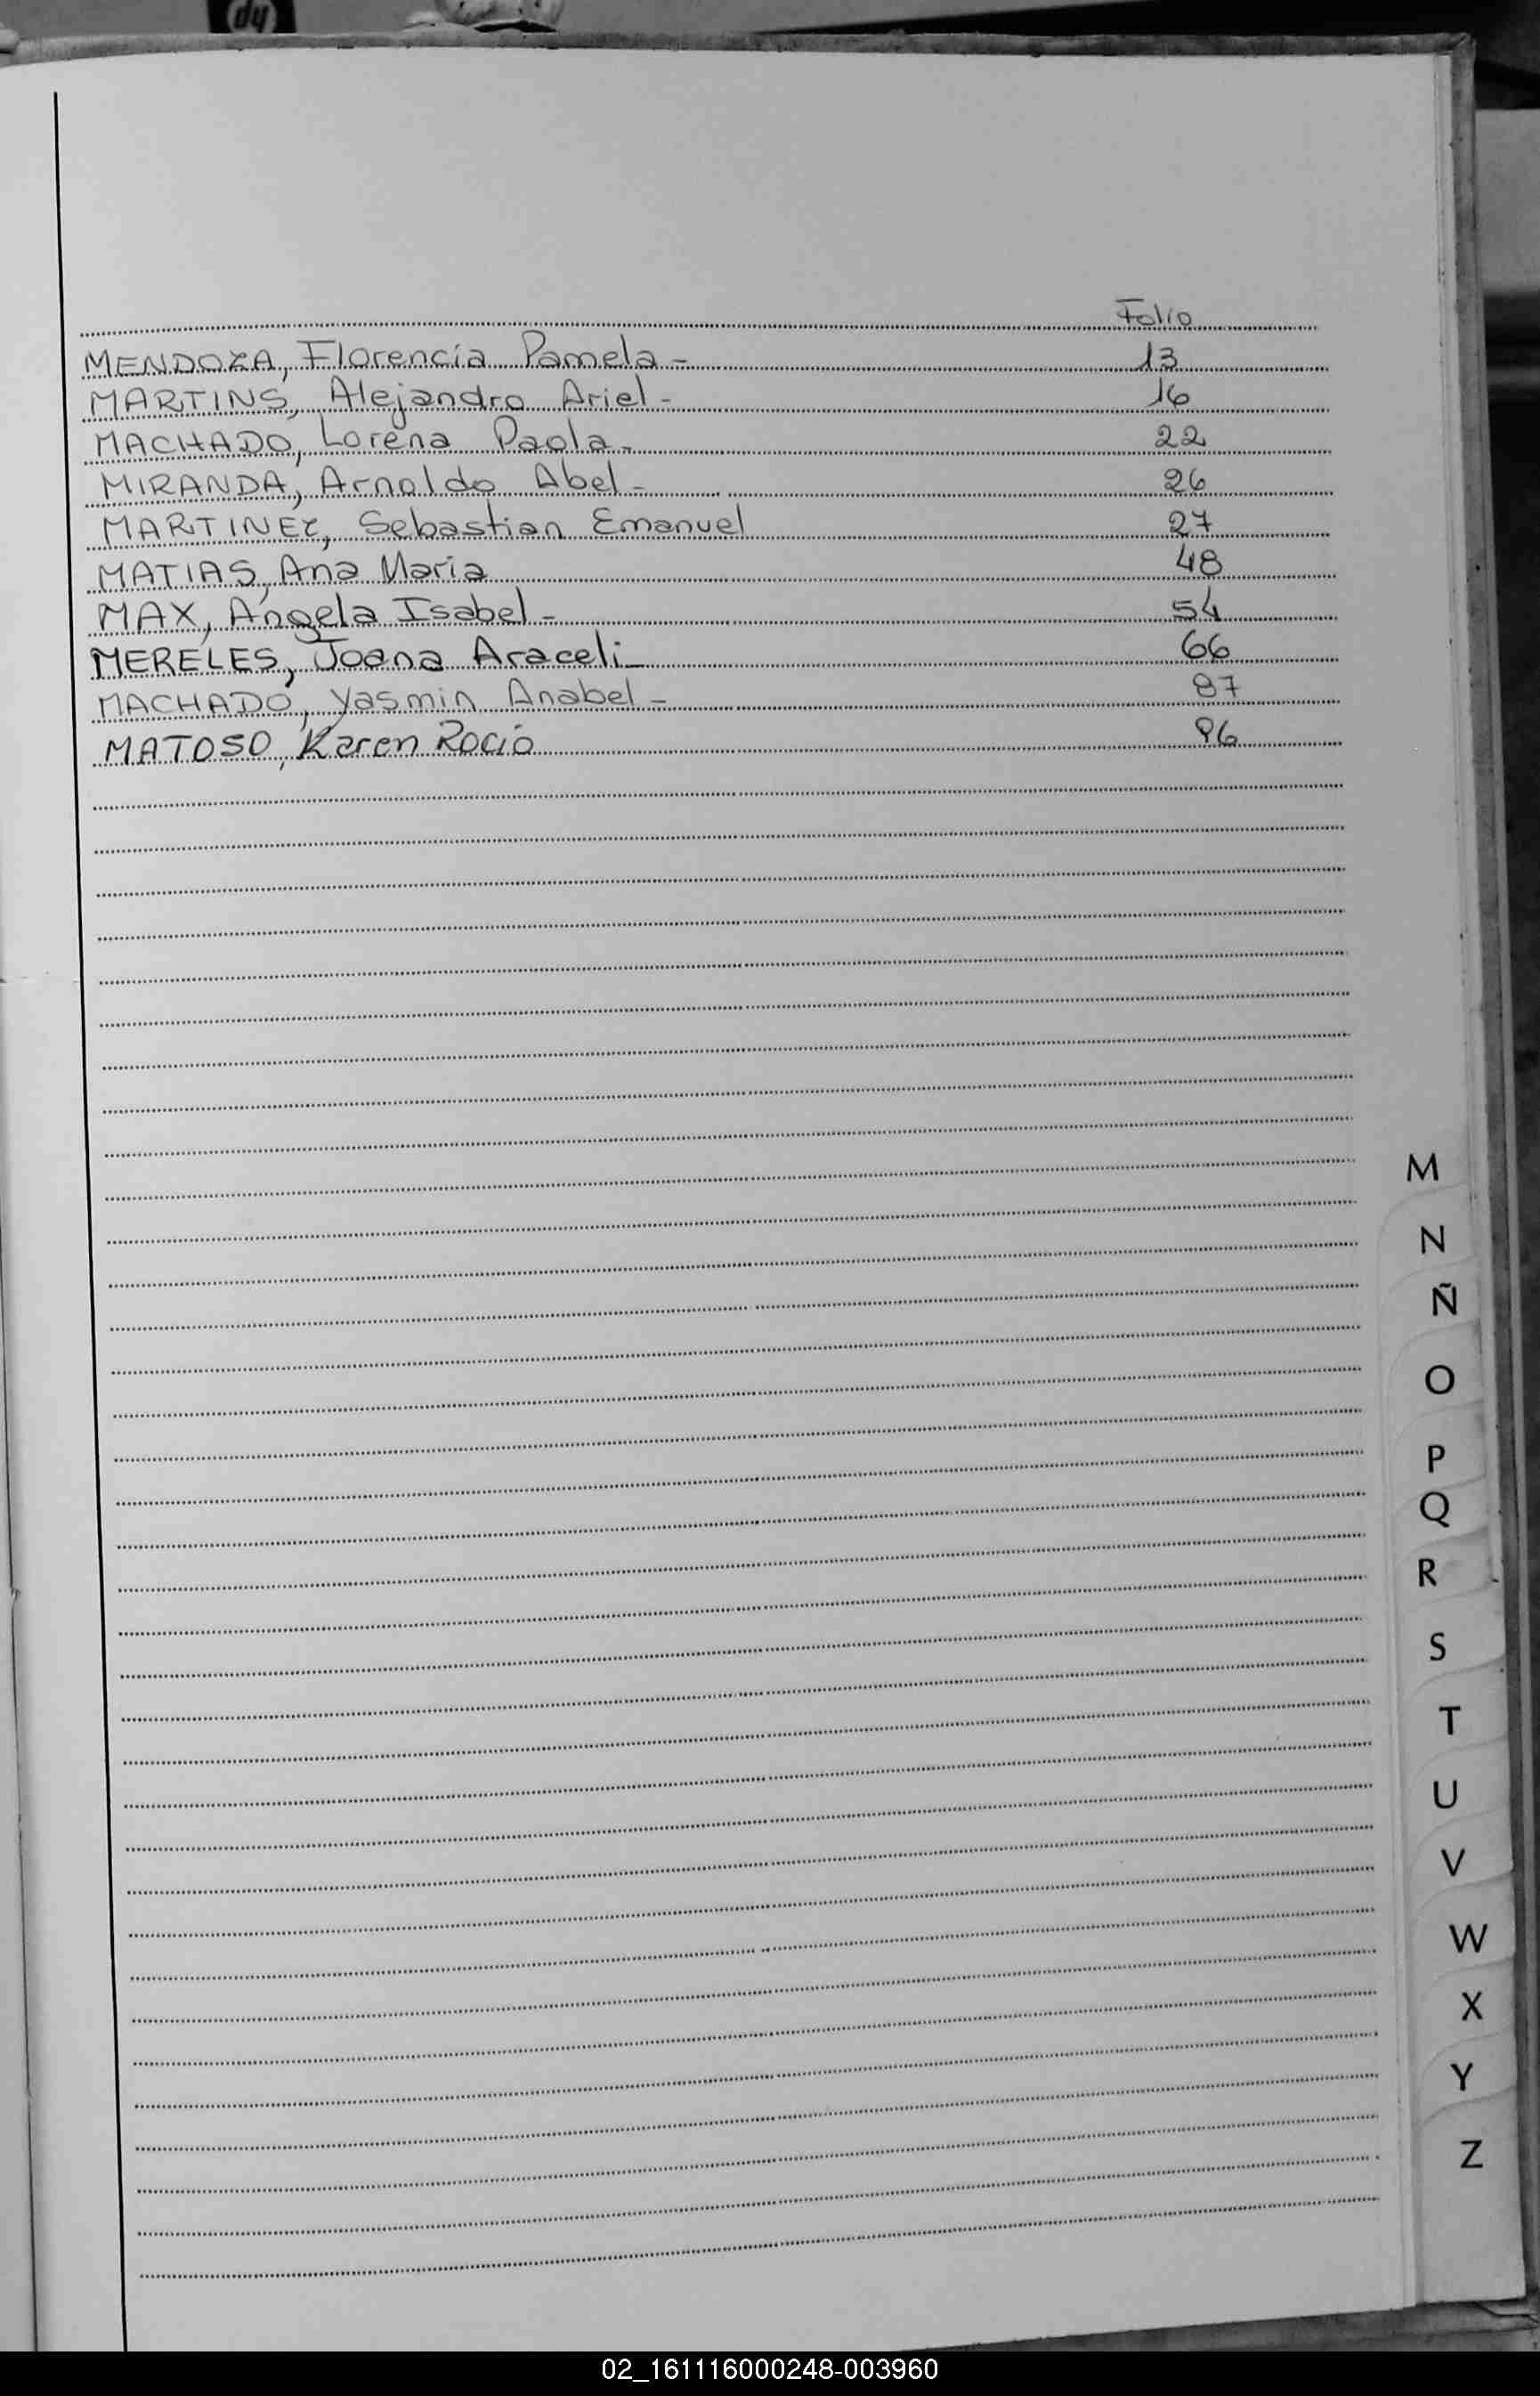 dy
Folio
MENDOZA, Florencia Pamela - 13
MARTINS, Alejandro Ariel - 16
MACHADO, Lorena Paola - 22
MIRANDA, Arnoldo Abel - 26
MARTINEZ, Sebastian Emanuel 27
MATIAS, Ana María 48
MAX, Angela Isabel - 54
MERELES, Joana Araceli - 66
MACHADO, Yasmin Anabel - 87
MATOSO, Karen Rocío 96
M
N
Ñ
O
P
Q
R
S
T
U
V
W
X
Y
Z
02_161116000248-003960